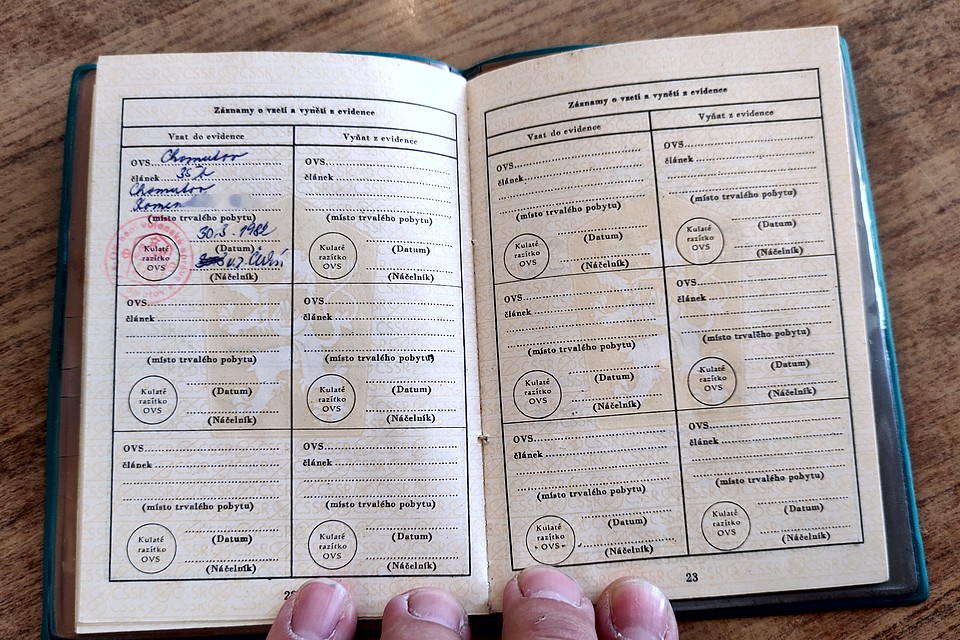 Záznamy o vzetí a vynětí z evidence
Vzat do evidence
Vyňat z evidence
OVS Chomutov
článek 35
Chomutov
(místo trvalého pobytu)
30. 3.
Kulaté
razítko
OVS
(Datum)
(Náčelník)
OVS
článek
(místo trvalého pobytu)
Kulaté
razítko
OVS
(Datum)
(Náčelník)
OVS
článek
(místo trvalého pobytu)
Kulaté
razítko
OVS
(Datum)
(Náčelník)
OVS
článek
(místo trvalého pobytu)
Kulaté
razítko
OVS
(Datum)
(Náčelník)
OVS
článek
(místo trvalého pobytu)
Kulaté
razítko
OVS
(Datum)
(Náčelník)
OVS
článek
(místo trvalého pobytu)
Kulaté
razítko
OVS
(Datum)
(Náčelník)
Záznamy o vzetí a vynětí z evidence
Vzat do evidence
Vyňat z evidence
OVS
článek
(místo trvalého pobytu)
Kulaté
razítko
OVS
(Datum)
(Náčelník)
OVS
článek
(místo trvalého pobytu)
Kulaté
razítko
OVS
(Datum)
(Náčelník)
OVS
článek
(místo trvalého pobytu)
Kulaté
razítko
OVS
(Datum)
(Náčelník)
OVS
článek
(místo trvalého pobytu)
Kulaté
razítko
OVS
(Datum)
(Náčelník)
OVS
článek
(místo trvalého pobytu)
Kulaté
razítko
OVS
(Datum)
(Náčelník)
OVS
článek
(místo trvalého pobytu)
Kulaté
razítko
OVS
(Datum)
(Náčelník)
23